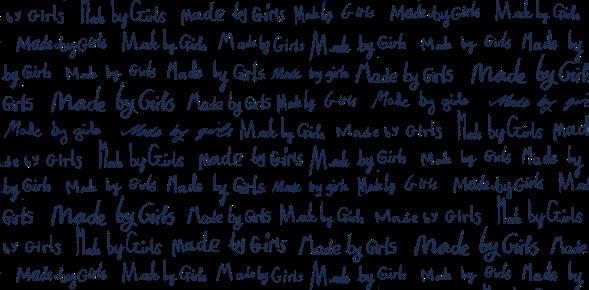 by Girls Made by Girls made by Girls Made by Girls Made by Girls Made by Girls
Made by Girls Made by Girls Made by Girls Made by Girls Made by Girls Made by
by Girls Made by Girls Made by Girls Made by girls Made by Girls Made by Girls
Girls Made by Girls Made by Girls Made by Girls Made by girls Made by
Made by girls Made by girls Made by Girls Made by Girls Made by Girls made
by Girls Made by Girls made by Girls Made by Girls Made by Girls Made by
by Girls Made by Girls Made by Girls Made by girls Made by Girls Made by Girls
Girls Made by Girls Made by Girls Made by Girls Made by Girls Made by Girls
by Girls Made by Girls made by Girls Made by Girls Made by Girls Made
Made by Girls Made by Girls Made by Girls Made by Girls Made by Girls Made by